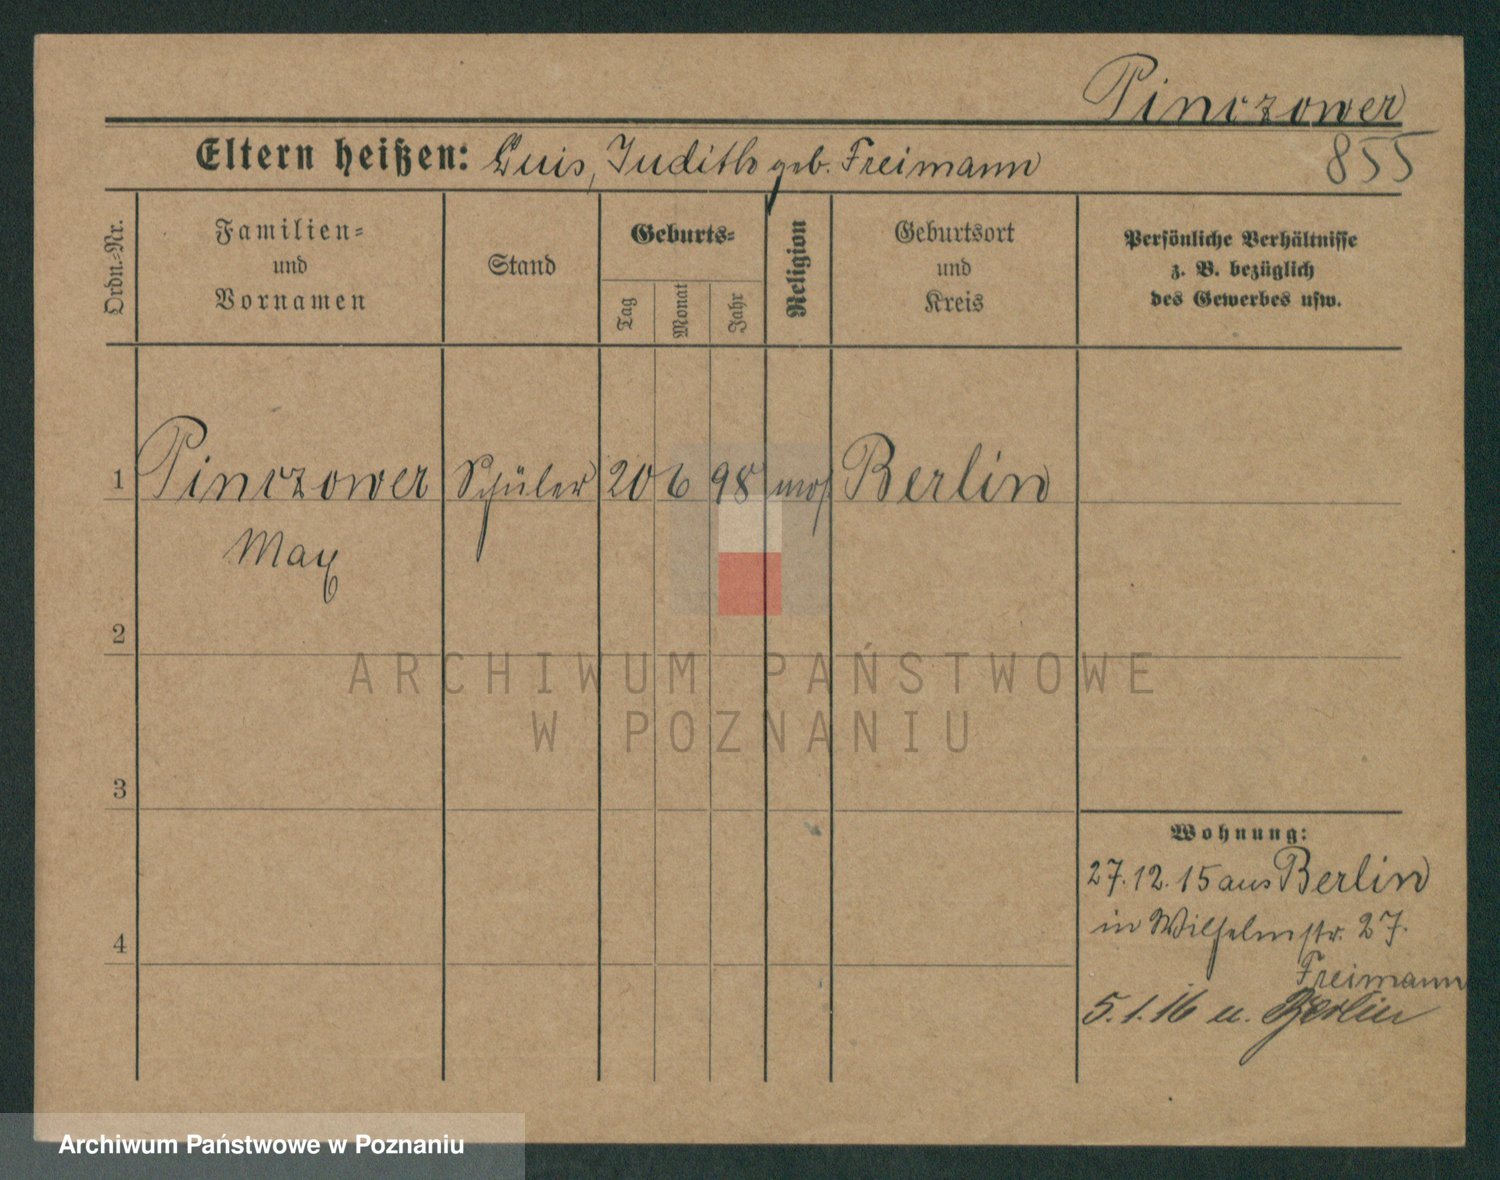 Pinczower
855
Eltern heißen: Luis, Judith geb. Freimann
Ordn.-Nr.
Familien-
und
Vornamen
Stand
Geburts-
Tag
Monat
Jahr
Religion
Geburtsort
und
Kreis
Persönliche Verhältnisse
z. B. bezüglich
des Gewerbes usw.
1 Pinczower Schüler 20 6 98 mos. Berlin
Max
2
3
4
Wohnung:
27.12.15 aus Berlin
in Wilhelmstr. 27.
Freimann
5.1.16 n. Berlin
ARCHIWUM PAŃSTWOWE
W POZNANIU
Archiwum Państwowe w Poznaniu